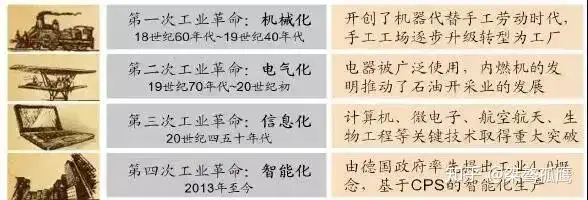 第一次工业革命：机械化
18世纪60年代~19世纪40年代
开创了机器代替手工劳动时代，
手工工场逐步升级转型为工厂
第二次工业革命：电气化
19世纪70年代~20世纪初
电器被广泛使用，内燃机的发
明推动了石油开采业的发展
第三次工业革命：信息化
20世纪四五十年代
计算机、微电子、航空航天、生
物工程等关键技术取得重大突破
第四次工业革命：智能化
2013年至今
由德国政府率先提出工业4.0概
念，基于CPS的智能化生产
知乎 @孤鹰